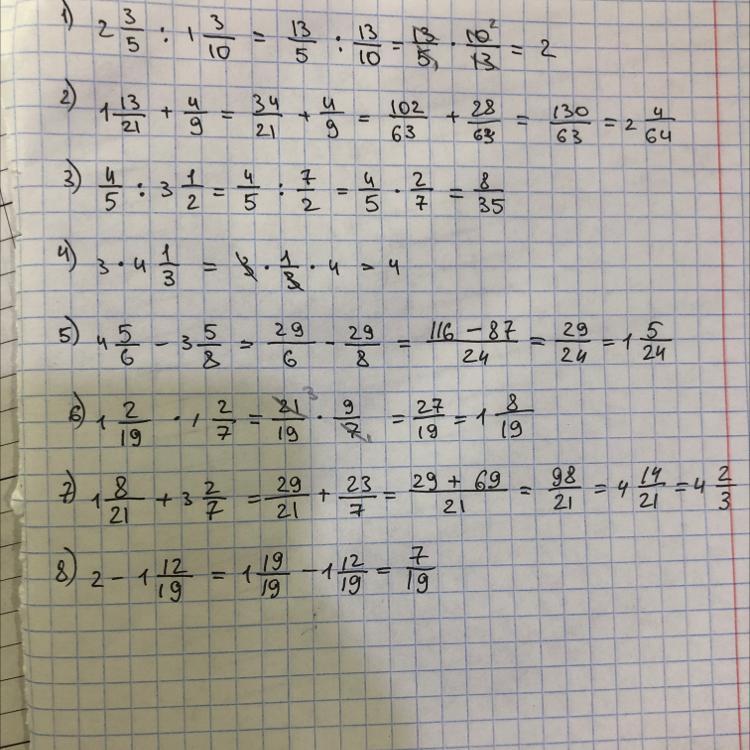 1) 2 3/5 : 1 3/10 = 13/5 : 13/10 = 13/5, · 10²/13 = 2
2) 1 13/21 + 4/9 = 34/21 + 4/9 = 102/63 + 28/63 = 130/63 = 2 4/64
3) 4/5 : 3 1/2 = 4/5 : 7/2 = 4/5 · 2/7 = 8/35
4) 3 · 4 1/3 = 3 · 1/3 · 4 = 4
5) 4 5/6 - 3 5/8 = 29/6 - 29/8 = 116 - 87/24 = 29/24 = 1 5/24
6) 1 2/19 · 1 2/7 = 21³/19 · 9/7, = 27/19 = 1 8/19
7) 1 8/21 + 3 2/7 = 29/21 + 23/7 = 29 + 69/21 = 98/21 = 4 14/21 = 4 2/3
8) 2 - 1 12/19 = 1 19/19 - 1 12/19 = 7/19